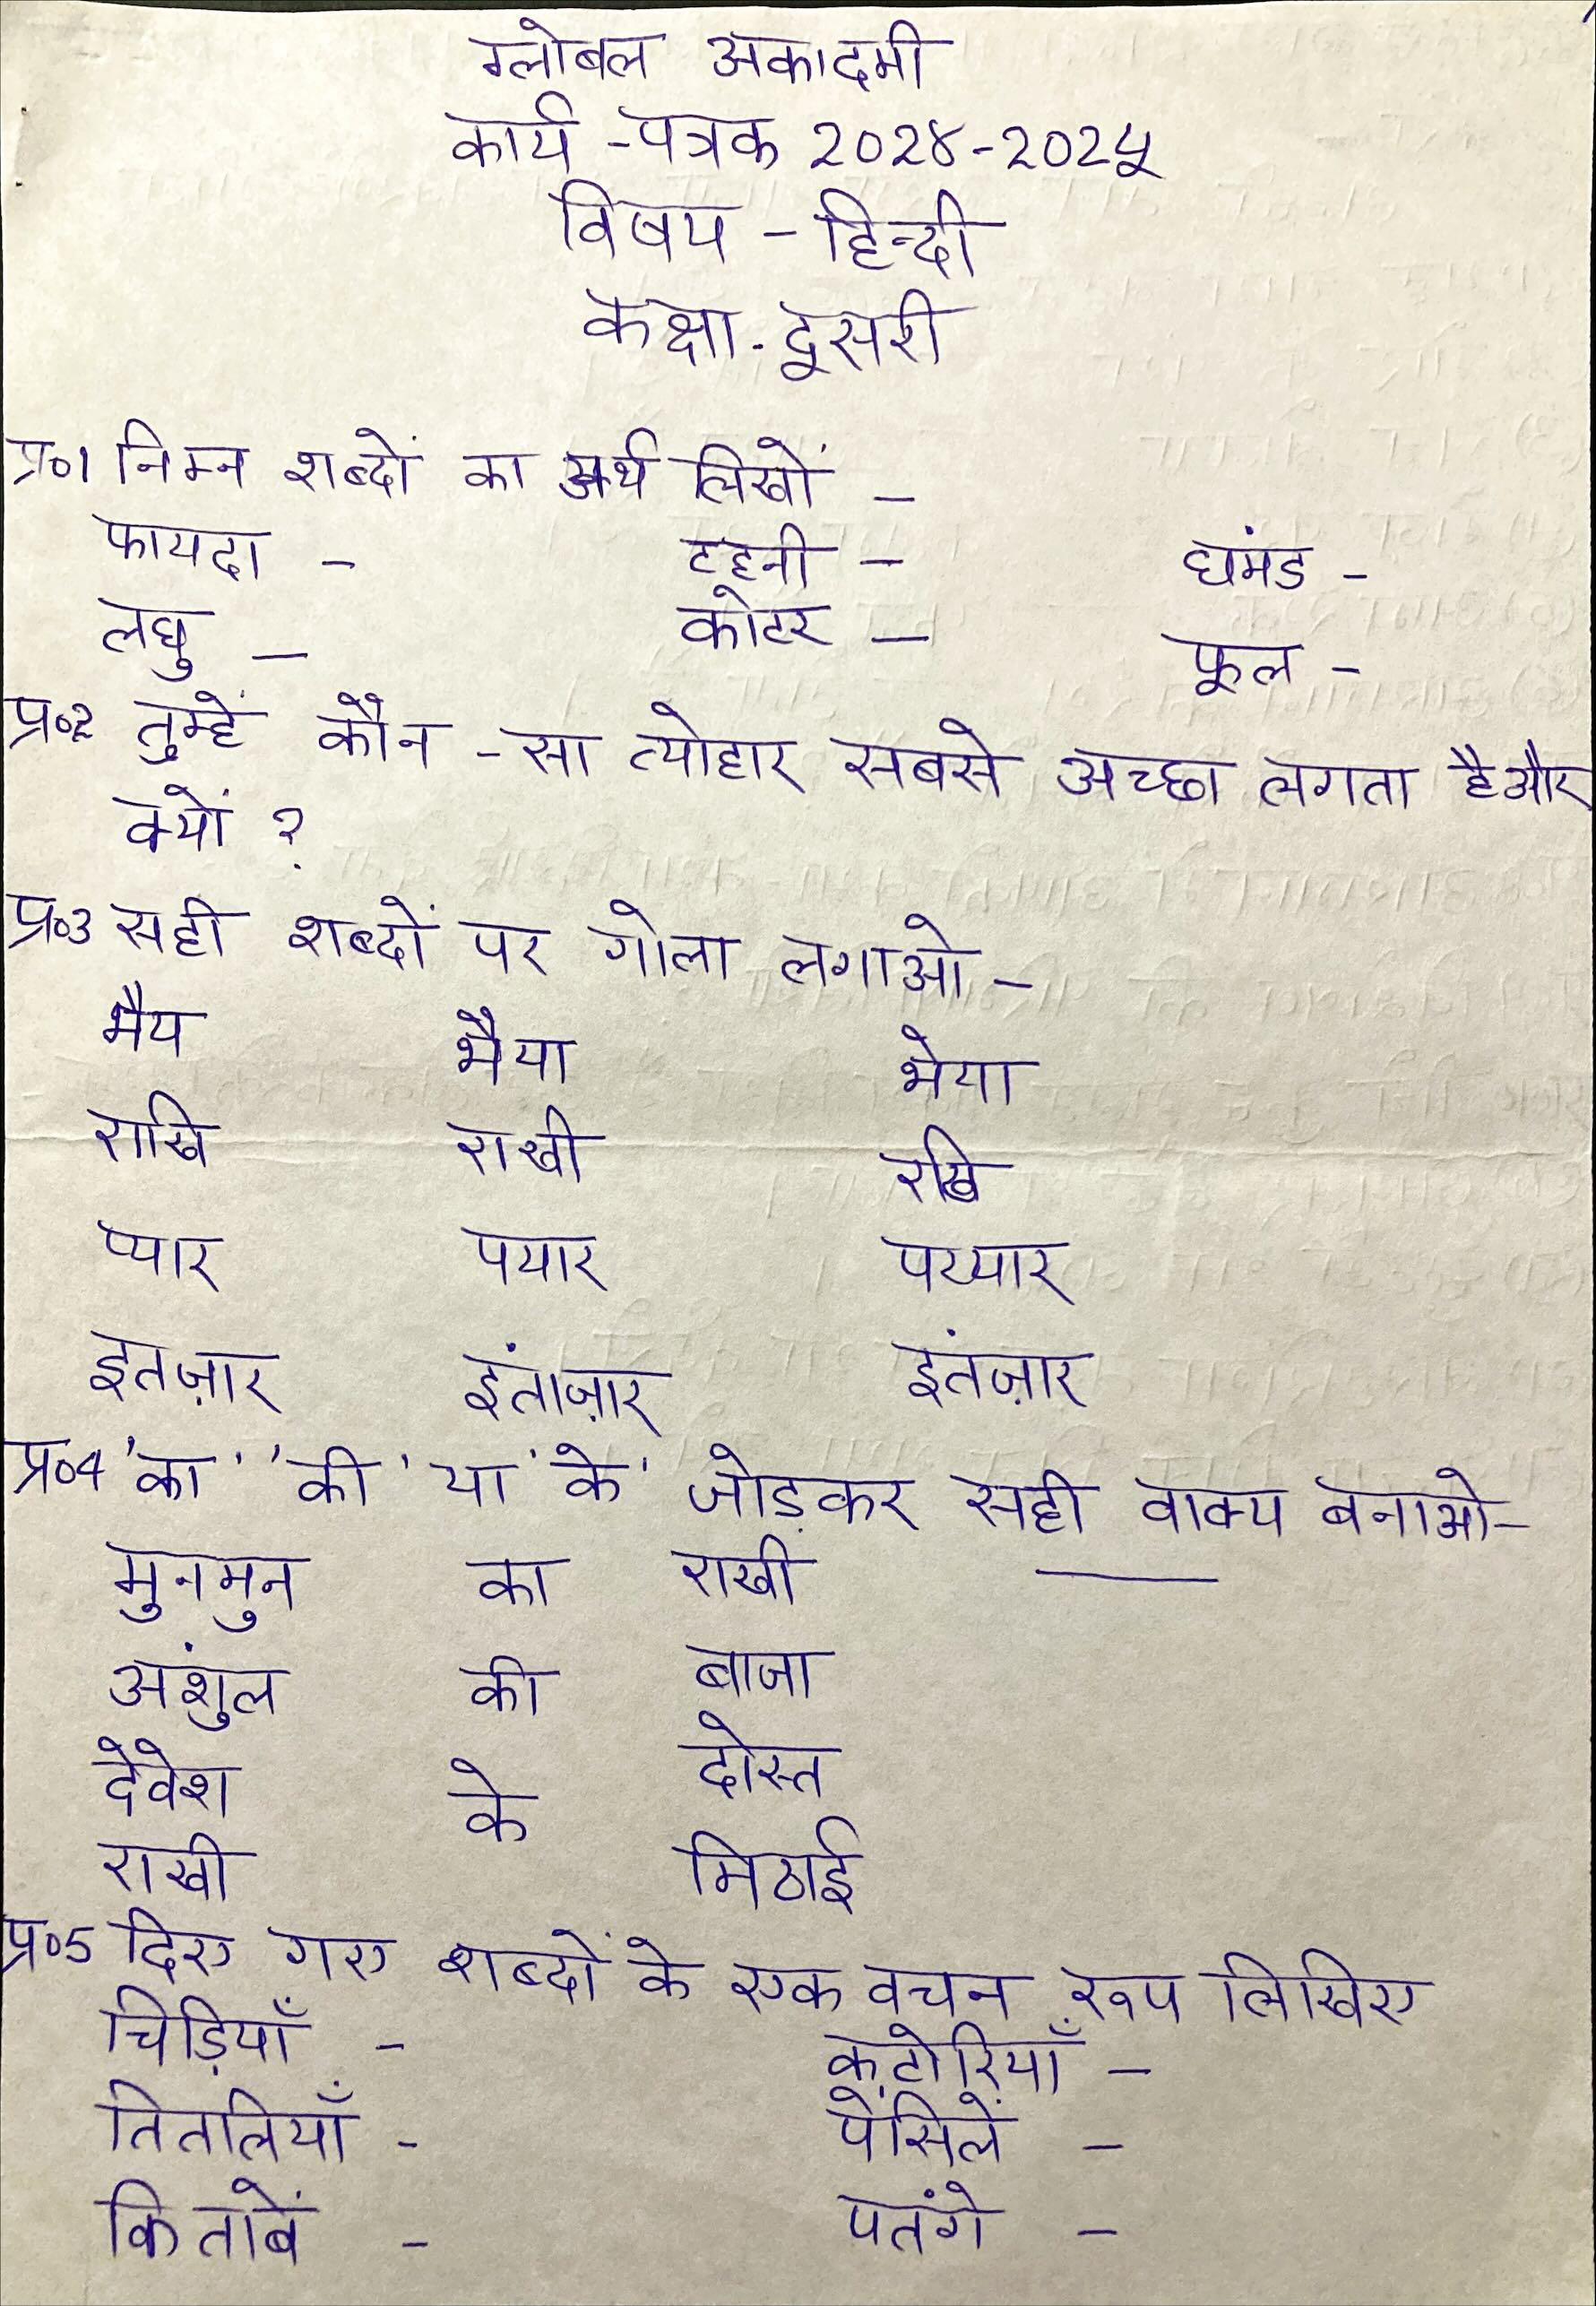 ग्लोबल अकादमी
कार्य -पत्रक २०२४-२०२५
विषय - हिन्दी
कक्षा - दूसरी
प्र०1 निम्न शब्दों का अर्थ लिखों -
फायदा - टहनी - घंमड -
लघु - कोटर - फूल -
प्र०२ तुम्हें कौन -सा त्योहार सबसे अच्छा लगता है और
क्यों ?
प्र०3 सही शब्दों पर गोला लगाओ -
भैय भैया भेया
राखि राखी रखि
प्यार पयार पय्यार
इतज़ार इंताज़ार इंतज़ार
प्र०4 'का' 'की' या 'के' जोड़कर सही वाक्य बनाओ-
मुनमुन का राखी ———
अंशुल की बाजा
देवेश के दोस्त
राखी मिठाई
प्र०5 दिए गए शब्दों के एक वचन रूप लिखिए
चिड़ियाँ - कटोरियाँ -
तितलियाँ - पेंसिलें -
किताबें - पतंगे -